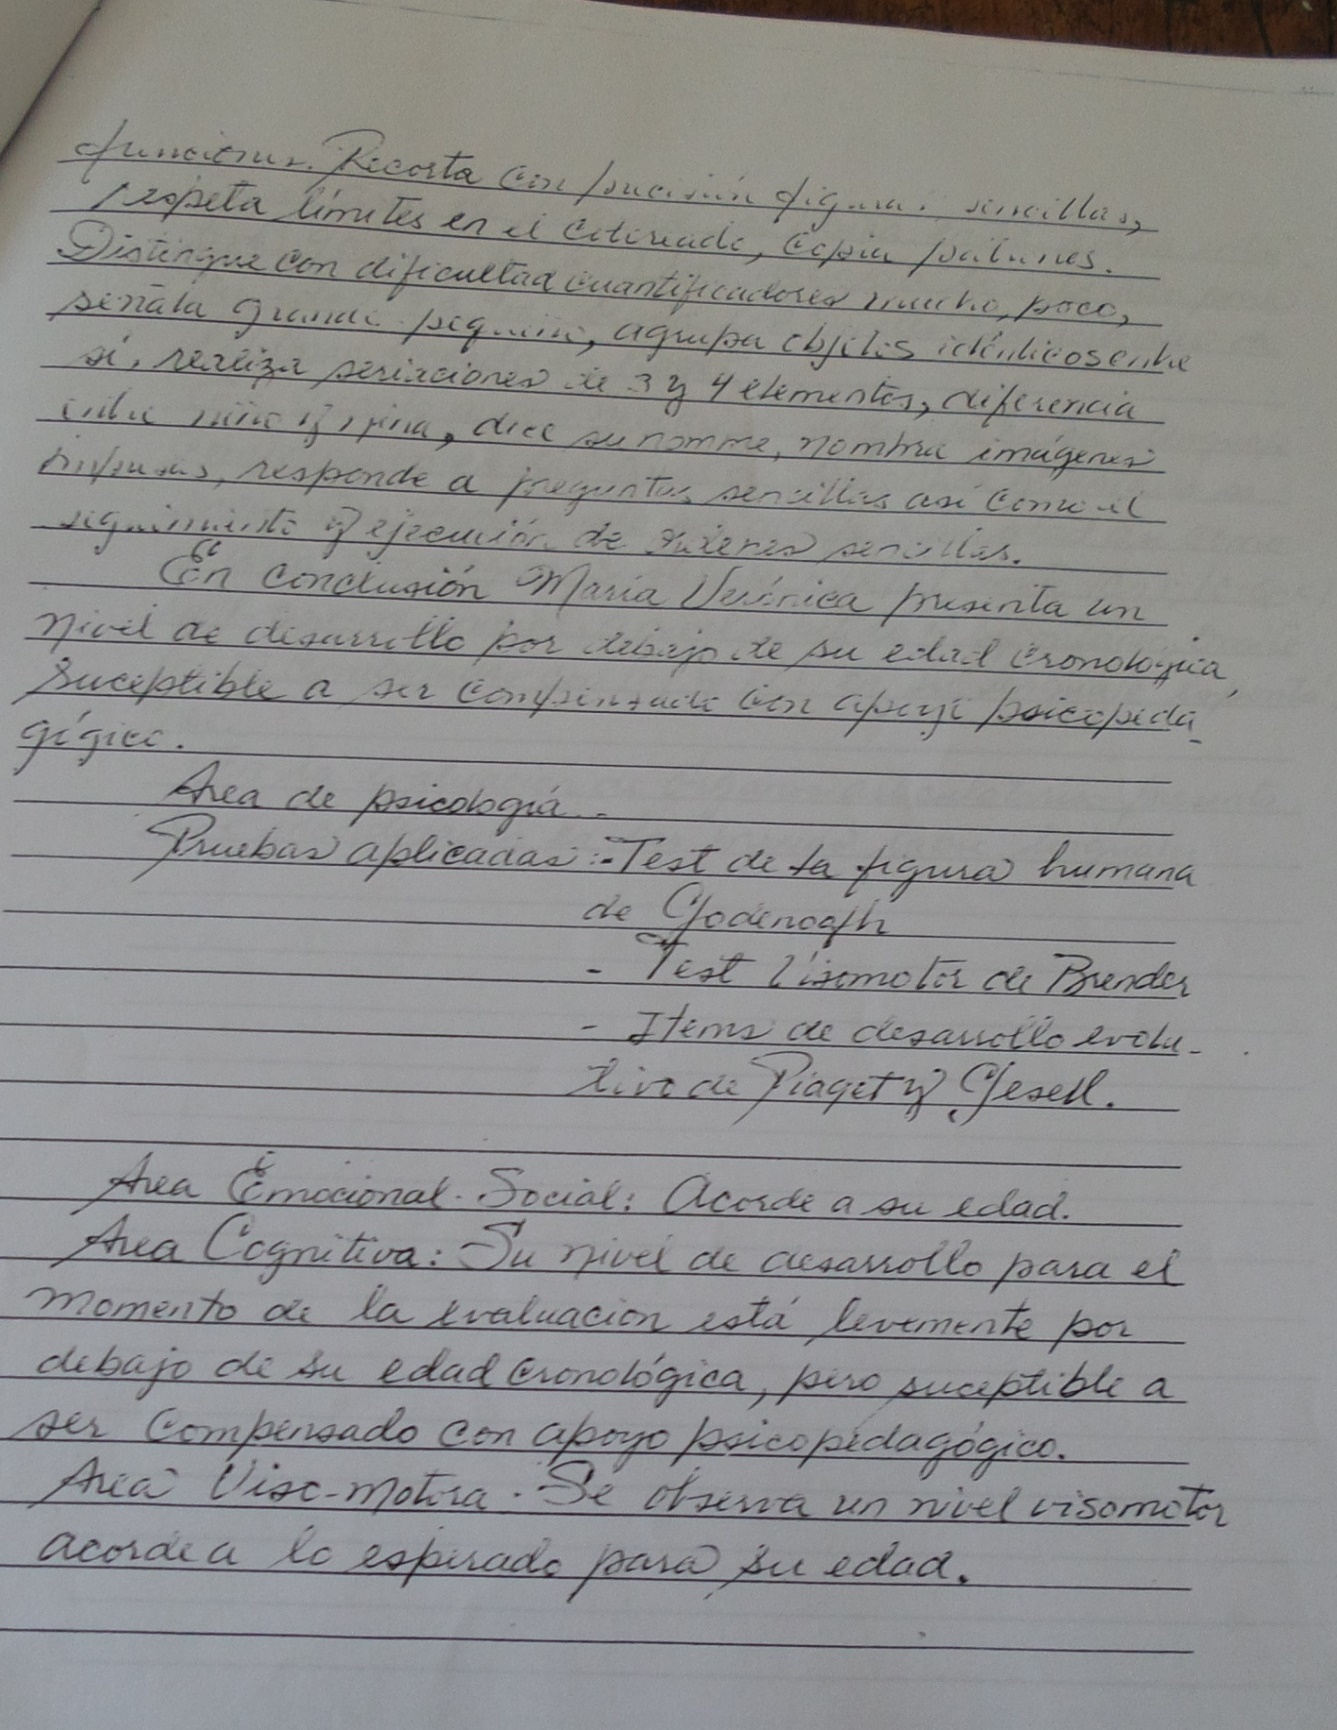 funciones. Recorta con precisión figuras sencillas,
respeta límites en el coloreado, copia patrones.
Distingue con dificultad cuantificadores mucho, poco,
señala grande pequeño, agrupa objetos idénticos entre
sí, realiza seriaciones de 3 y 4 elementos, diferencia
entre niño y niña, dice su nomme, nombra imágenes
impresas, responde a preguntas sencillas así como el
seguimiento y ejecución de órdenes sencillas.
En conclusión María Verónica presenta un
nivel de desarrollo por debajo de su edad cronológica,
suceptible a ser compensado con apoyo psicopeda-
gógico.
Area de psicología.-
Pruebas aplicadas:-Test de la figura humana
de Godenogfh
- Test Visomotor de Brender
- Items de desarrollo evolu-
tivo de Piaget y Gesell.
Area Emocional-Social: Acorde a su edad.
Area Cognitiva: Su nivel de desarrollo para el
momento de la evaluación está levemente por
debajo de su edad cronológica, pero suceptible a
ser compensado con apoyo psicopedagógico.
Area Viso-motora. Se observa un nivel visomotor
acorde a lo esperado para su edad.